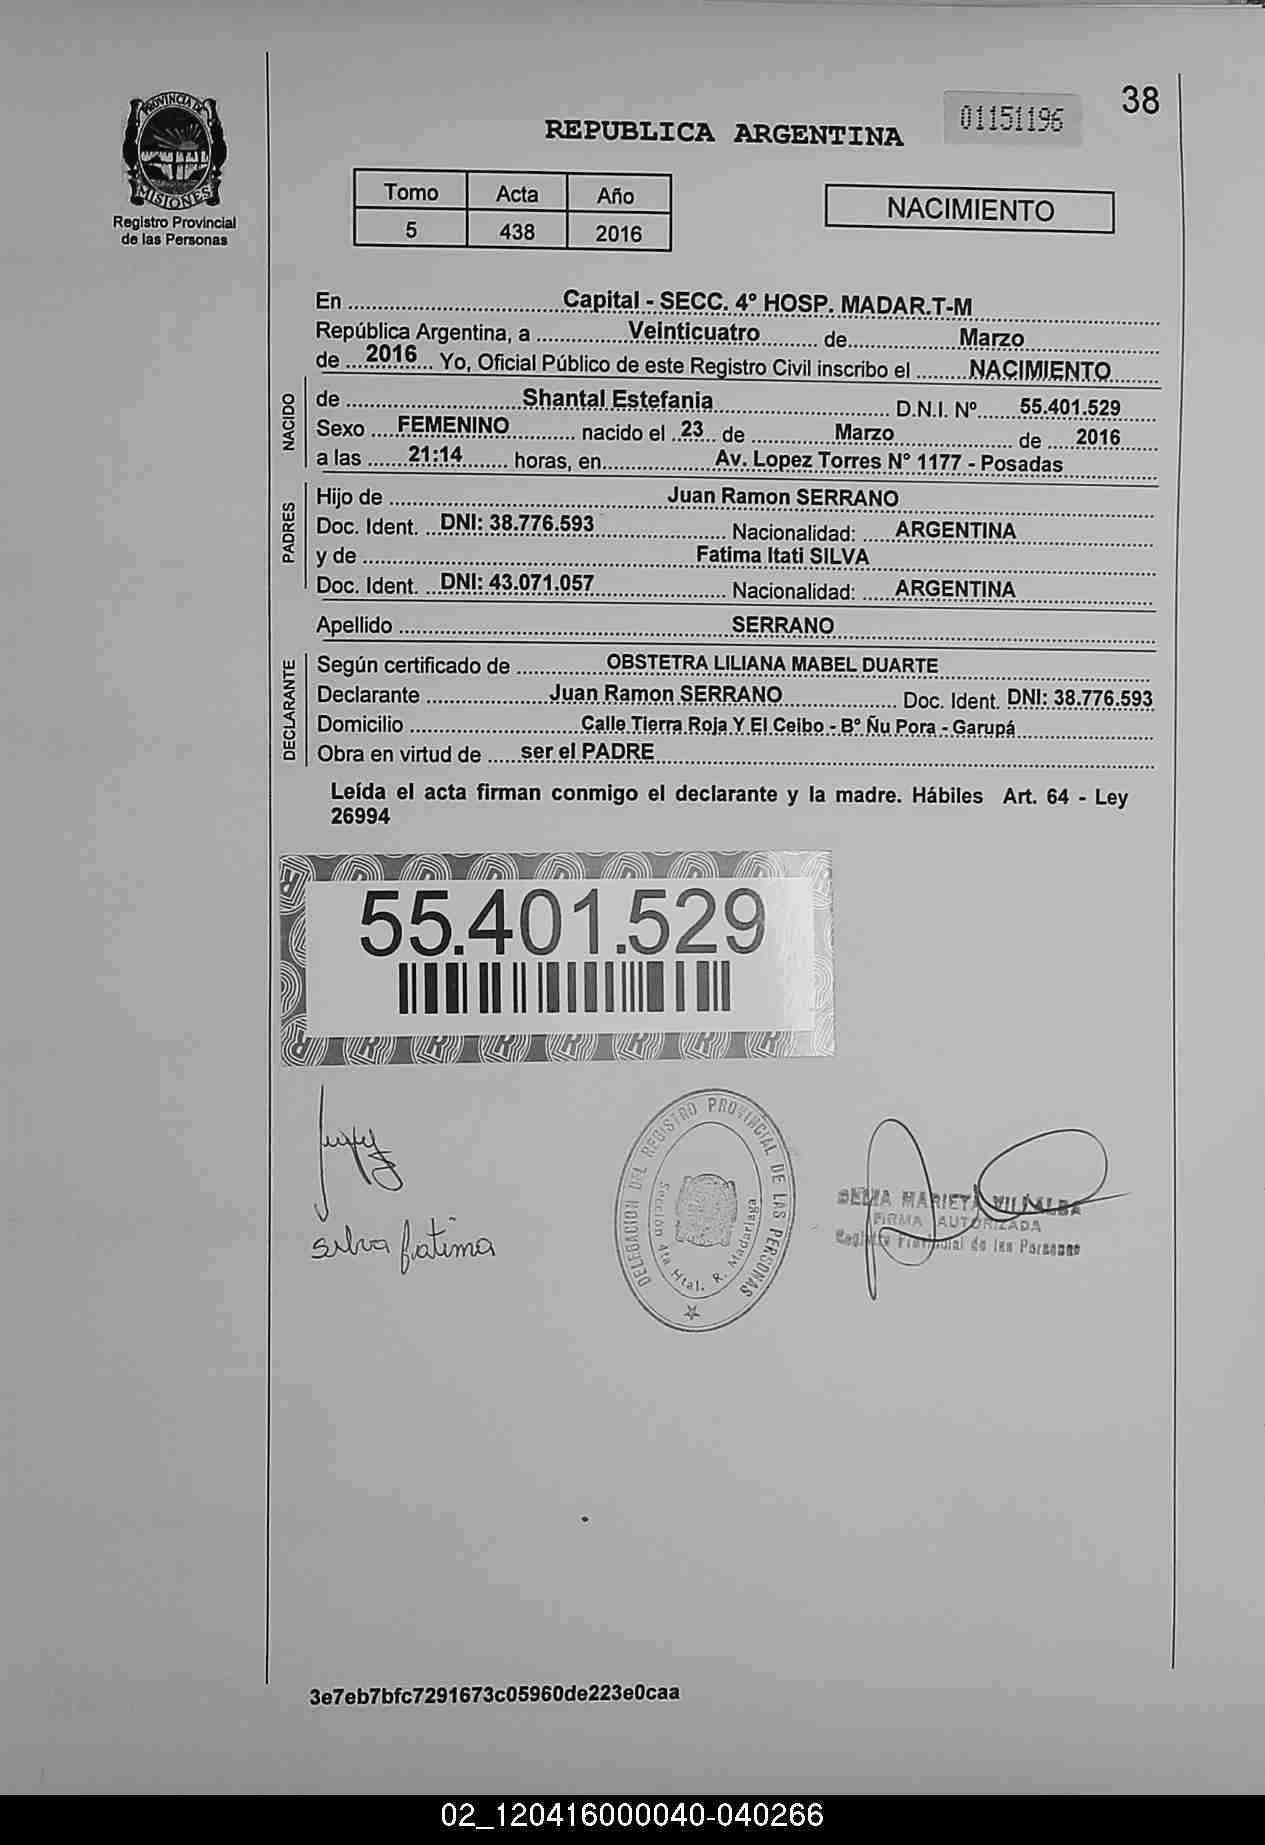 38
01151196
REPUBLICA ARGENTINA
PROVINCIA DE
MISIONES
Registro Provincial
de las Personas
Tomo Acta Año
5 438 2016
NACIMIENTO
En Capital - SECC. 4º HOSP. MADAR.T-M
República Argentina, a Veinticuatro de Marzo
de 2016 Yo, Oficial Público de este Registro Civil inscribo el NACIMIENTO
NACIDO
de Shantal Estefania D.N.I. Nº 55.401.529
Sexo FEMENINO nacido el 23 de Marzo de 2016
a las 21:14 horas, en Av. Lopez Torres N° 1177 - Posadas
PADRES
Hijo de Juan Ramon SERRANO
Doc. Ident. DNI: 38.776.593 Nacionalidad: ARGENTINA
y de Fatima Itati SILVA
Doc. Ident. DNI: 43.071.057 Nacionalidad: ARGENTINA
Apellido SERRANO
DECLARANTE
Según certificado de OBSTETRA LILIANA MABEL DUARTE
Declarante Juan Ramon SERRANO Doc. Ident. DNI: 38.776.593
Domicilio Calle Tierra Roja Y El Ceibo - B° Ñu Pora - Garupá
Obra en virtud de ser el PADRE
Leída el acta firman conmigo el declarante y la madre. Hábiles Art. 64 - Ley
26994
55.401.529
silva fatima
DELEGACION DEL REGISTRO PROVINCIAL DE LAS PERSONAS
Sección 4ta Htal. R. Madariaga
MARIETA VILLALBA
FIRMA AUTORIZADA
Registro Provincial de las Personas
3e7eb7bfc7291673c05960de223e0caa
02_120416000040-040266